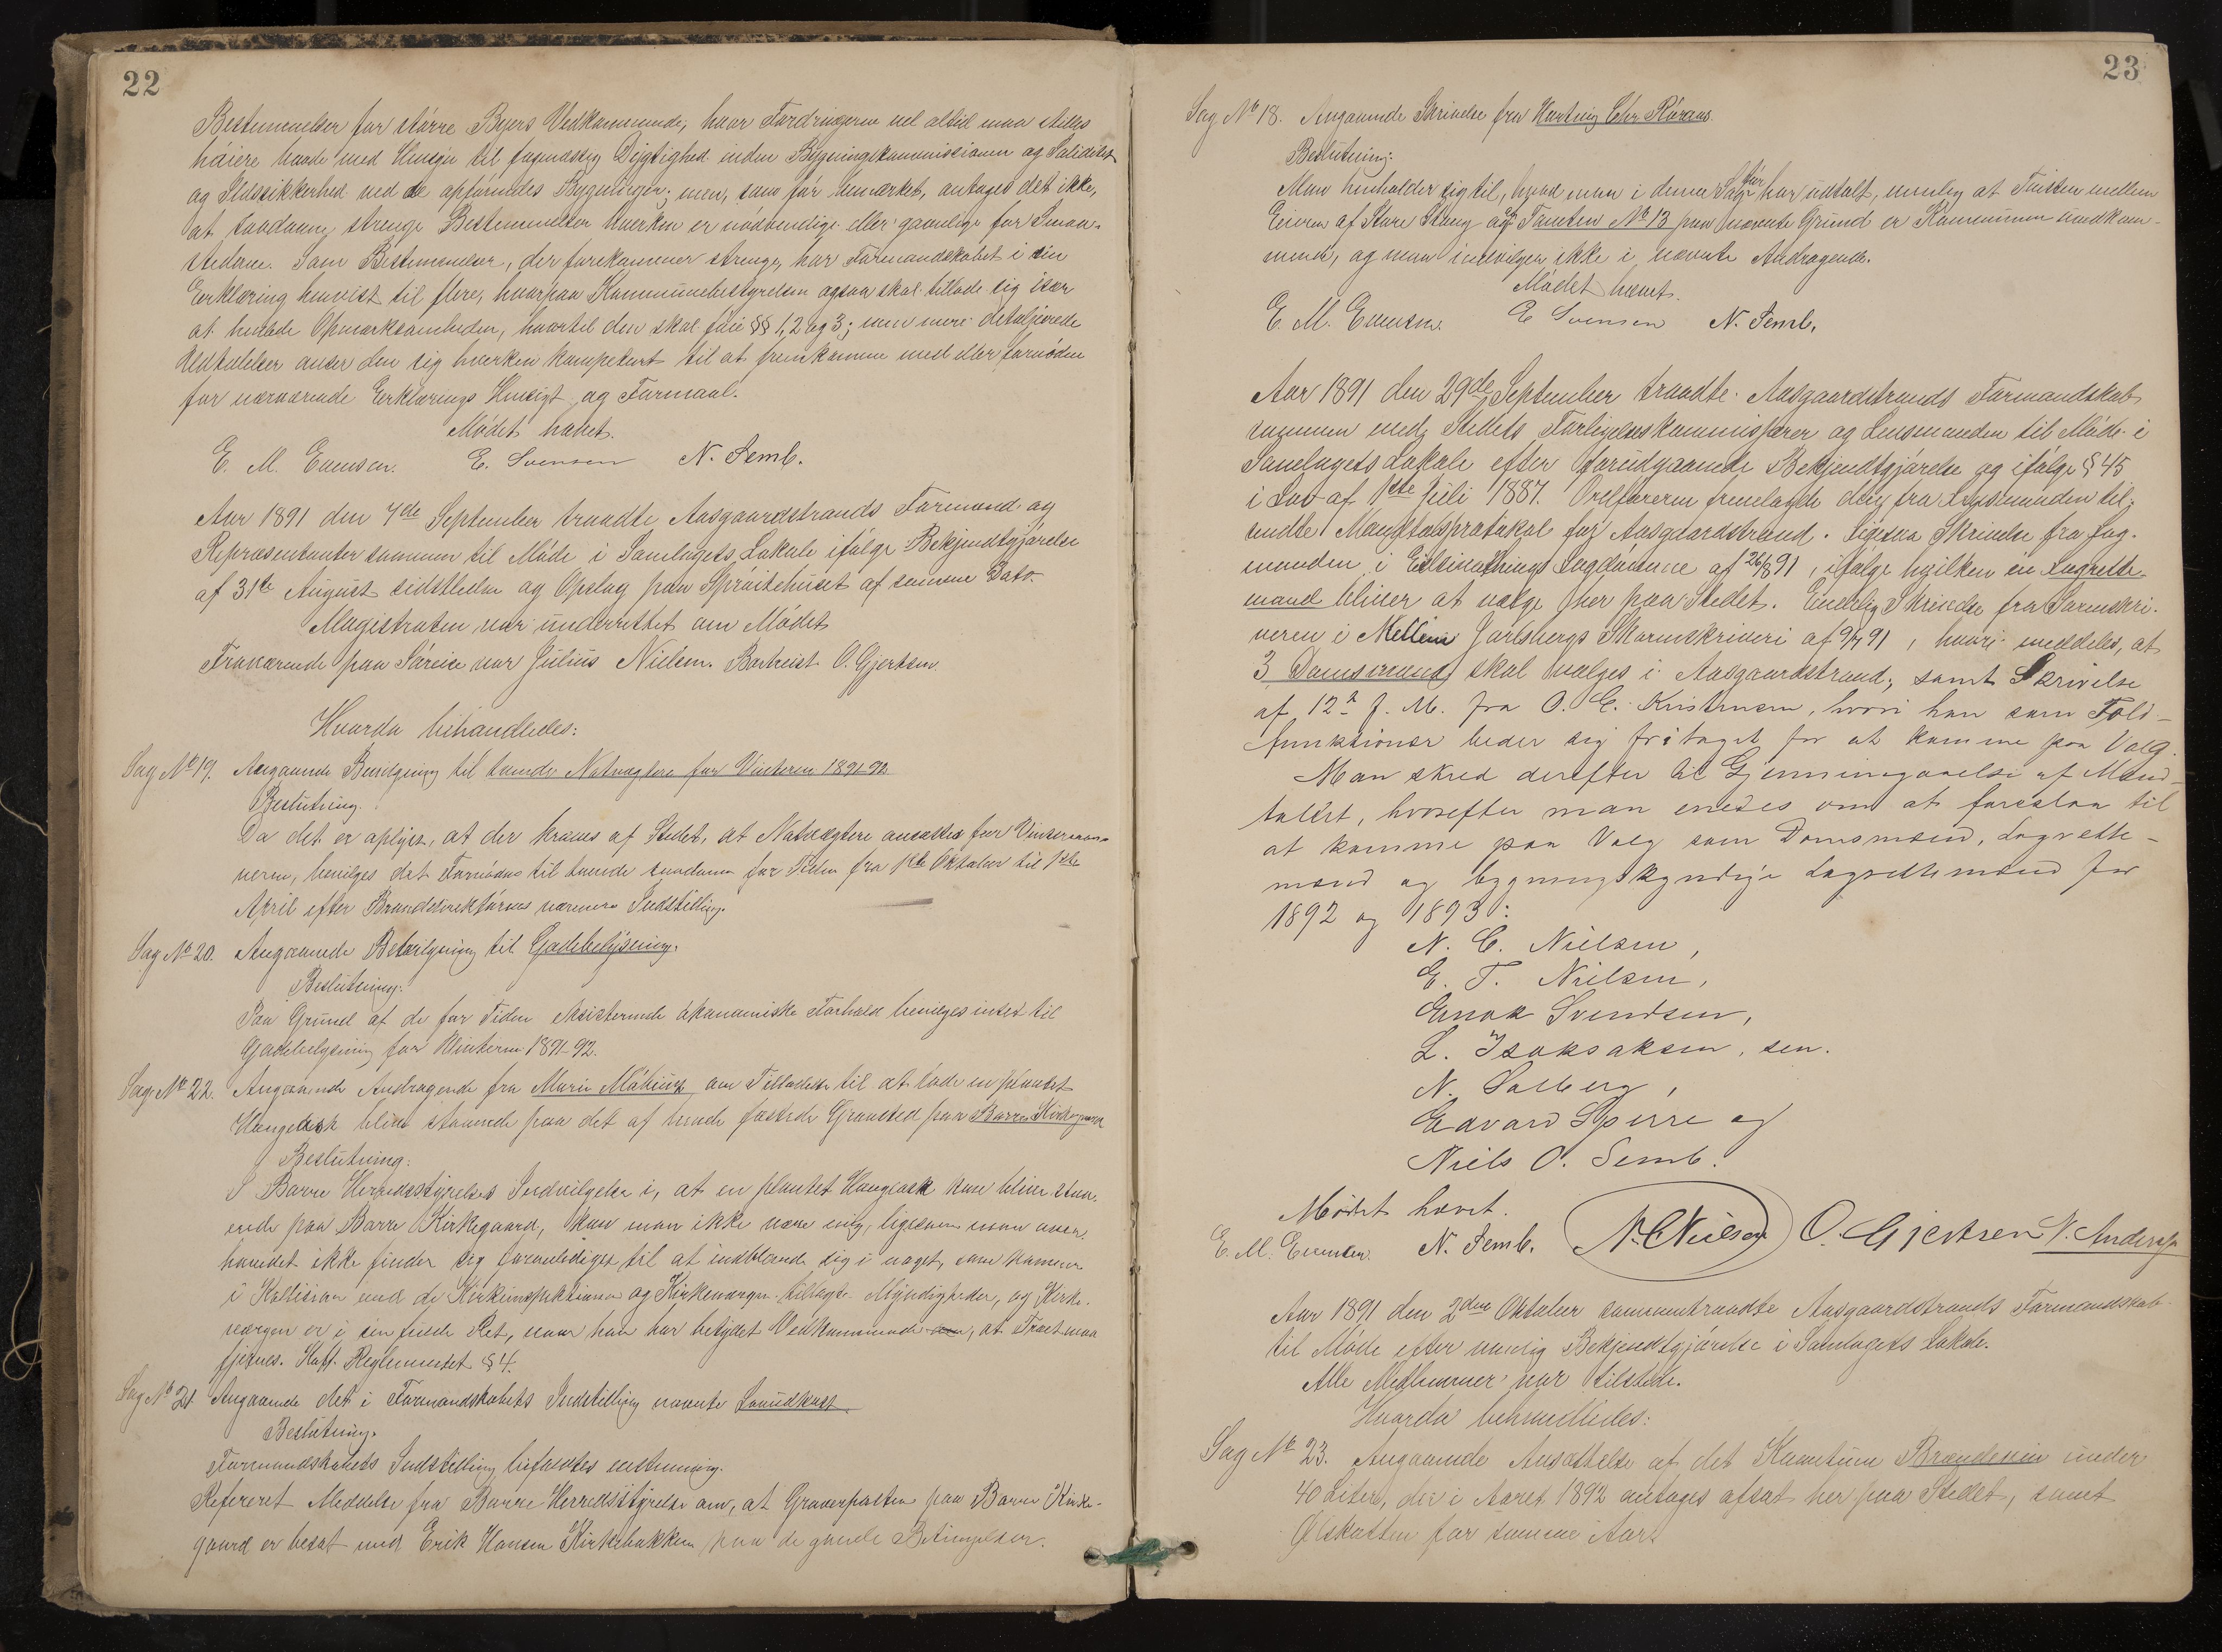 22
Bestemmelser for större Byers Vedkommende, hvor Fordringerne vel altid maa stilles
höiere baade med Hensyn til fagmæssig Dygtighed inden Bygningskommissionen og Soliditet
og Ildssikkerhed ved de opförendes Bygninger; men, som för bemærket, antages det ikke,
at saadanne strenge Bestemmelser hverken er nödvendige eller gavnlige for Smaa-
stederne. Som Bestemmelser, der forekommer strenge, har Formandskabet i sin
Erklæring henvist til flere, hvorpaa Kommunebestyrelsen ogsaa skal tillade sig især
at henlede Opmærksomheden, hvortil den skal föie §§ 1, 2 og 3; men mere detaljerede
Udtalelser anser den sig hverken kompetent til at fremkomme med eller fornöden
for nærværende Erklærings Hensigt og Formaal.
Mödet hævet.
E. M. Evensen. E. Svensen N. Semb.
Aar 1891 den 7de September traadte Aasgaardstrands Formænd og
Repræsentanter sammen til Möde i Samlagets Lokale ifölge Bekjendtgjörelse
af 31te August sidstleden og Opslag paa Spröitehuset af samme Dato.
Magistraten var underrettet om Mödet
Fraværende paa Söreise var Julius Nielsen. Bortreist O. Gjertsen.
Hvorda behandledes:
Sag No 19. Angaaende Bevilgning til tvende Natvægtere for Vinteren 1891-92
Beslutning.
Da det er oplyst, at der kræves af Stedet, at Natvægtere ansættes for Vinterman-
neren, bevilges det Fornödne til tvende saadanne for Tiden fra 1ste Oktober til 1ste
April efter Branddirektörens nærmere Indstilling.
Sag No 20. Angaaende Bevilgning til Gadebelysning.
Beslutning:
Paa Grund af de for Tiden eksisterende ökonomiske Forhold bevilges intet til
Gadebelysning for Vinteren 1891-92.
Sag No 22. Angaaende Andragende fra Marie Möbius om Tilladelse til at lade en plantet
Hængeask blive staaende paa det af hende fæstede Gravsted paa Borre Kirkegaard
Beslutning:
I Borre Herredsstyrelses Indvilgelse i, at en plantet Hængeask kan blive staa-
ende paa Borre Kirkegaard, kan man ikke være enig, ligesom man oven-
hovedet ikke finder sig foranlediget til at indblande sig i noget, som kommer
i Kollision med de Kirkeinspektionen og Kirkeværgen tillagte Myndigheder, og Kirke-
værgen er i sin fulde Ret, naar han har betydet Vedkommende om, at Træet maa
fjernes. Kaff. Reglementet § 4.
Sag No 21. Angaaende det i Formandskabets Indstilling nævnte Lovudkast.
Beslutning.
Formandskabets Indstilling bifaldtes enstemmig.
Refereret Meddelse fra Borre Herredsstyrelse om, at Graverposten paa Borre Kirke-
gaard er besat med Erik Hansen Kirkebakken paa de gamle Betingelser.
23
Sag No 18. Angaaende Skrivelse fra Hartvig Chr Röraas.
Beslutning:
Man henholder sig til, hvad man i denne Sag för har udtalt, nemlig at Tvisten mellem
Eieren af Store Stang og Tomten No 13 paa nævnte Grund er Kommunen uvedkom-
mende, og man indvilgen ikke i nævnte Andragende.
Mödet hævet.
E. M. Evensen. E Svensen N. Semb.
Aar 1891 den 29de September traadte Aasgaardstrands Formandskab
sammen med Stedets Forligelseskommissærer og Lensmanden til Möde i
Samlagets Lokale efter forudgaaende Bekjendtgjörelse og ifölge § 45
i Lov af 1ste Juli 1887. Ordföreren fremlagde den fra Lensmanden til-
sendte Mandtalsprotokol for Aasgaardstrand. Ligesaa Skrivelse fra Lag-
manden i Eidsivathings Lagdömme af 26/8 91, ifölge hvilken en Lagrette-
mand bliver at vælge her paa Stedet. Endelig Skrivelse fra Sorenskri-
veren i Mellem Jarlsbergs Sorenskriveri af 9/9 91, hvori meddeles, at
3 Domsmænd skal vælges i Aasgaardstrand, samt Skrivelse
af 12te f. M. fra O. E. Kristensen, hvori han som Told-
funktionær beder sig fritaget for at komme paa Valg.
Man skred derefter til Gjennemgaaelse af Mand-
tallet, hvorefter man enedes om at foreslaa til
at komme paa Valg som Domsmænd, Lagrette-
mænd og bygningskyndige Lagrettemænd for
1892 og 1893:
N. C. Nielsen,
E. T. Nielsen,
Enok Svendsen,
L. Isaksaksen, sen.
N. Solberg,
Edvard Spirre og
Niels O. Semb.
Mödet hævet.
E. M. Evensen. N. Semb. N. C Nielsen O. Gjertsen N. Anderssen
Aar 1891 den 2den Oktober sammentraadte Aasgaardstrands Formandskab
til Möde efter vanlig Bekjendtgjörelse i Samlagets Lokale.
Alle Medlemmer var tilstede.
Hvorda behandledes:
Sag No 23. Angaaende Ansættelse af det Kvantum Brændevin under
40 Liter, der i Aaret 1892 antages afsat her paa Stedet, samt
Ølskatten for samme Aar.